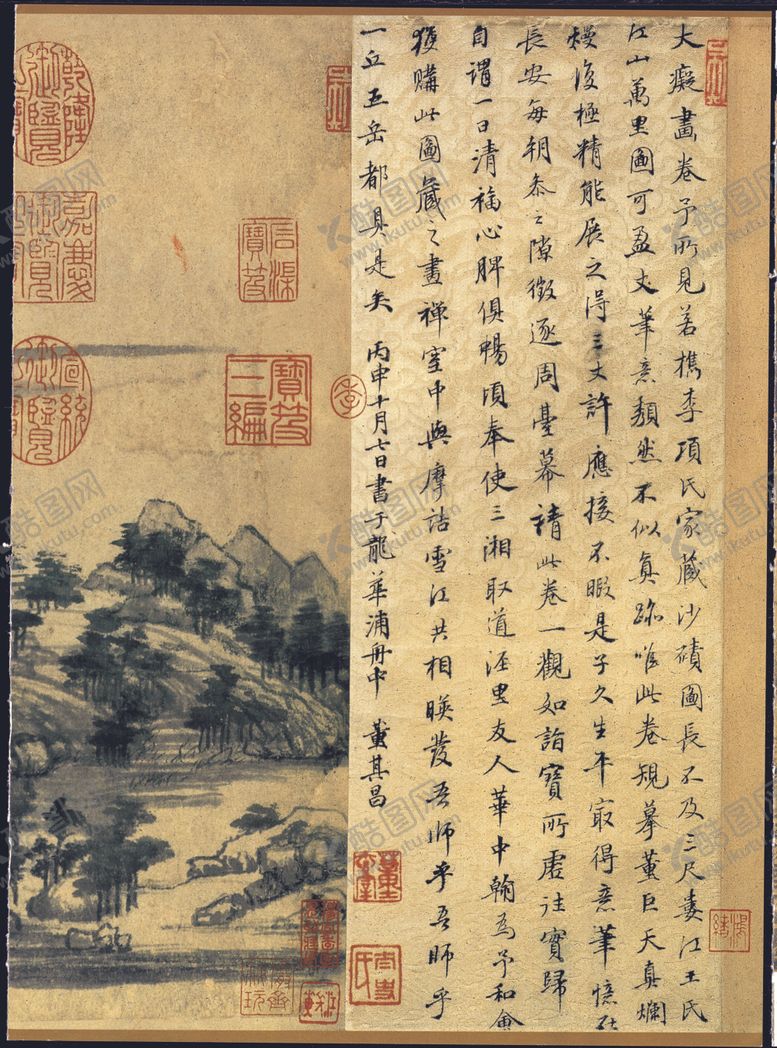 大癡畫卷予所見若檇李項氏家藏沙磧圖長不及三尺婁江王氏
江山萬里圖可盈丈筆意頹然不似真跡唯此卷規摹董巨天真爛
熳復極精能展之得三丈許應接不暇是子久生平最得意筆憶在
長安每朝參之隙徵逐周臺幕請此卷一觀如詣寶所虛往實歸
自謂一日清福心脾俱暢頃奉使三湘取道涇里友人華中翰為予和會
獲購此圖藏之畫禪室中與摩詰雪江共相暎發吾師乎吾師乎
一丘五岳都具是矣 丙申十月七日書于龍華浦舟中 董其昌
乾隆御覽之寶
嘉慶御覽
宣統御覽之寶
石渠寶笈
寶笈三編
季
酷图网
www.ikutu.com